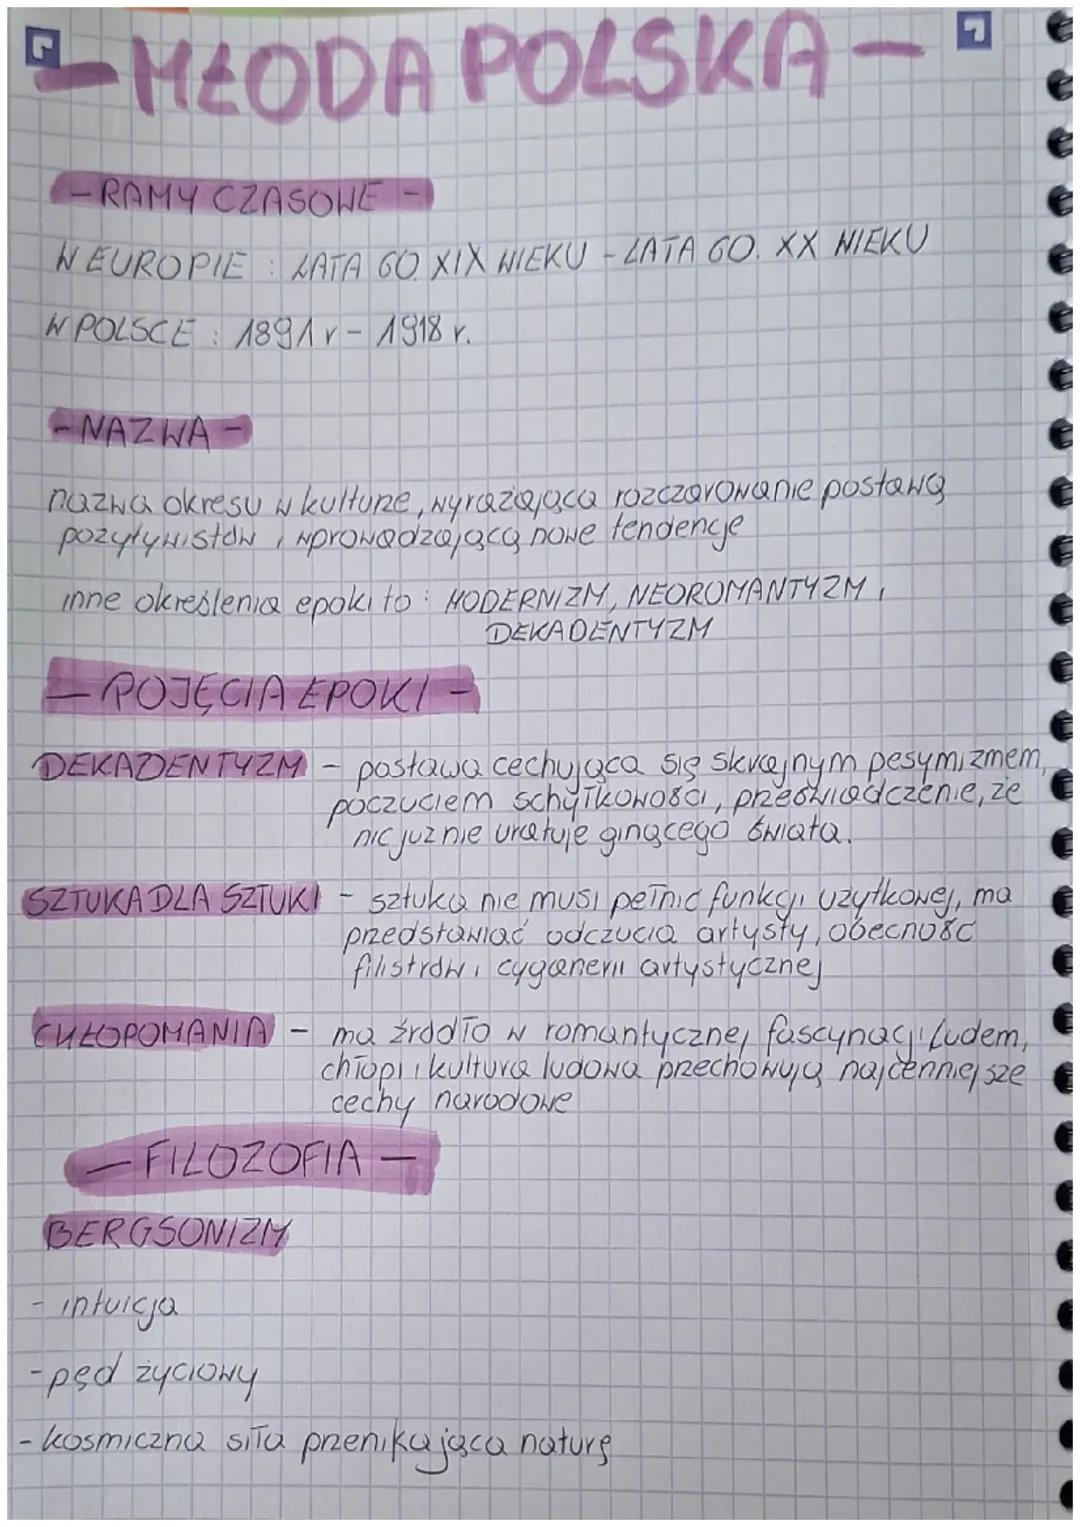 - MŁODA POLSKA -
- RAMY CZASOWE -
W EUROPIE : LATA 60. XIX WIEKU - LATA 60. XX WIEKU
W POLSCE : 1891 r - 1918 r.
- NAZWA -
nazwa okresu w kulturze, wyrażająca rozczarowanie postawą
pozytywistów, wprowadzającą nowe tendencje
inne określenia epoki to : MODERNIZM, NEOROMANTYZM,
DEKADENTYZM
- POJĘCIA EPOKI -
DEKADENTYZM - postawa cechująca się skrajnym pesymizmem,
poczuciem schyłkowości, przeświadczenie, że
nic już nie uratuje ginącego świata.
SZTUKA DLA SZTUKI - sztuka nie musi pełnić funkcji użytkowej, ma
przedstawiać odczucia artysty, obecność
filistrów i cyganerii artystycznej
CHŁOPOMANIA - ma źródło w romantycznej fascynacji ludem,
chłopi i kultura ludowa przechowują najcenniejsze
cechy narodowe
- FILOZOFIA -
BERGSONIZM
- intuicja
- pęd życiowy
- kosmiczna siła przenikająca naturę